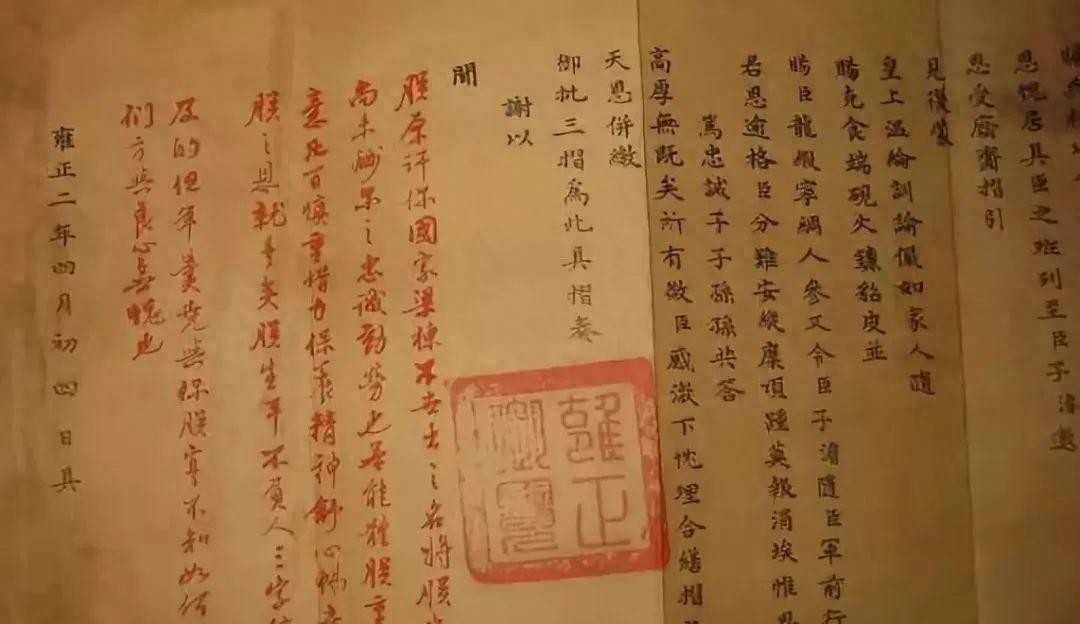 恩愧居具臣之班列至臣子濬邀
恩受廕齎摺引
見復蒙
皇上溫綸訓諭儼如家人隨
賜克食端硯火鐮貂皮並
賜臣龍緞寧綢人參又令臣子濬隨臣軍前行
君恩逾格臣分難安縱糜頂踵莫報涓埃惟思
篤忠誠子子孫孫共答
高厚無既矣所有微臣感激下忱理合繕摺
天恩併繳
御批三摺爲此具摺奏
謝以
聞
朕原許你國家梁棟不世出之名將朕
尚未酬尔之忠誠勤勞也尔能體朕
意凡百慎重惜力保養精神舒心暢
朕之恩就是矣朕生平不負人三字
及的但年羹堯與你朕實不知如何
們方與良心無愧也
雍正二年四月初四日具
雍正